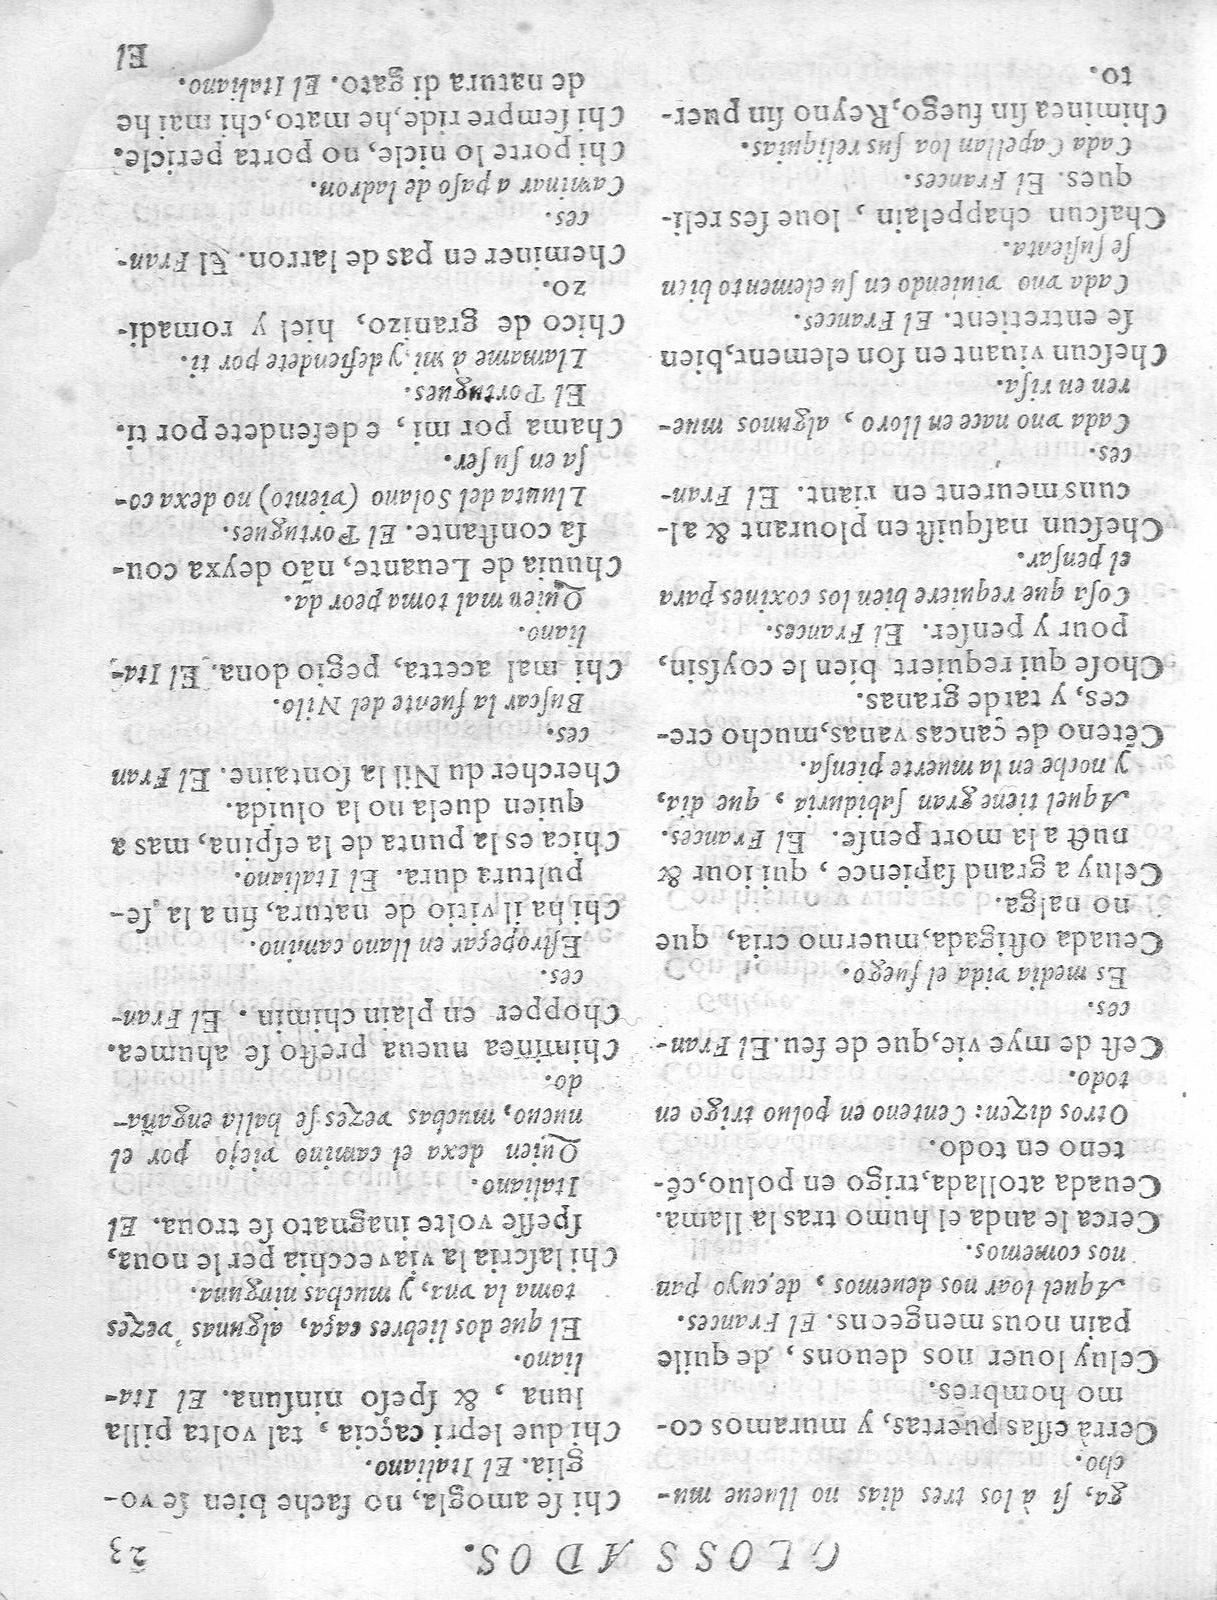 GLOSSADOS. 23
ga, ſi à los tres dias no llueue mu-
cho.
Cerrà eſſas puertas, y muramos co-
mo hombres.
Celuy louer nos deuons, de qui le
pain nous mengeons. El Frances.
Aquel loar nos deuemos, de cuyo pan
nos comemos.
Cerca le anda el humo tras la llama.
Ceuada atollada, trigo en poluo, cē-
teno en todo
Otros dizen: Centeno en poluo trigo en
todo.
Ceſt de mye vie, que de feu. El Fran-
ces.
Es media vida el fuego.
Ceuada oſtigada, muermo cria, que
no nalga.
Celuy a grand ſapience, qui iour &
nuct a la mort penſe. El Frances.
Aquel tiene gran ſabiduria, que dia,
y noche en la muerte pienſa.
Cēteno de çancas vanas, mucho cre-
ces, y tarde granas.
Choſe qui requiert bien le coyſsin,
pour y penſer. El Frances.
Coſa que requiere bien los coxines para
el penſar.
Cheſcun naſquiſt en plourant & al-
cuns meurent en riant. El Fran-
ces.
Cada vno nace en lloro, algunos mue-
ren en riſa.
Cheſcun viuant en ſon element, bien
ſe entretient. El Frances.
Cada vno viuiendo en ſu elemento bien
ſe ſuſtenta.
Chaſcun chappelain, loue ſes reli-
ques. El Frances.
Cada Capellan loa ſus reliquias.
Chiminea ſin fuego, Reyno ſin puer-
to.
Chi ſe amogla, no fache bien ſe vo-
glia. El Italiano.
Chi due lepri cacçia, tal volta pilla
luna, & ſpeſo ninſuna. El Ita-
liano.
El que dos liebres caça, algunas vezes
toma la vna, y muchas ninguna.
Chi laſcria la via vecchia per le noua,
ſpeſſe volte inagnato ſe troua. El
Italiano.
Quien dexa el camino viejo por el
nueuo, muchas vezes ſe halla engaña-
do.
Chiminea nueua preſto ſe ahumea.
Chopper en plain chimin. El Fran-
ces.
Eſtropeçar en llano camino.
Chi ha il vitio de natura, fin a la ſe-
pultura dura. El Italiano.
Chica es la punta de la eſpina, mas a
quien duela no la oluida.
Chercher du Nil la fontaine. El Fran
ces.
Buſcar la fuente del Nilo.
Chi mal acetta, pegio dona. El Ita-
liano.
Quien mal toma peor da.
Chuuia de Leuante, não deyxa cou-
ſa conſtante. El Portugues.
Lluuia del Solano (viento) no dexa co-
ſa en ſu ſer.
Chama por mi, e defendete por ti.
El Portugues.
Llamame à mi, y defiendete por ti.
Chico de granizo, hiel y romadi-
zo.
Cheminer en pas de larron. El Fran-
ces.
Caminar a paſo de ladron.
Chi porte lo nicle, no porta pericle.
Chi ſempre ride, he, mato, chi mai he
de natura di gato. El Italiano.
El